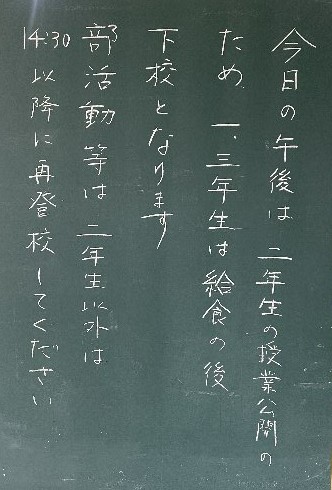 今日の午後は 二年生の授業公開の
ため 一、三年生は給食の後
下校となります
部活動等は 二年生以外は
14:30以降に再登校してください